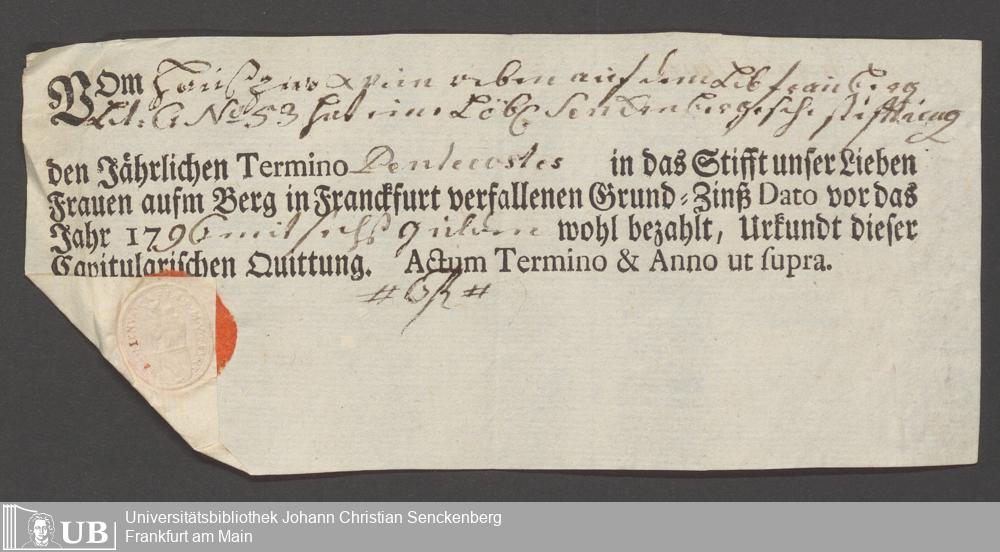 VOm Hauß zum grünen reben auf dem Liebfrauberg
Lit. G No 53 hat eine Löbl. Senckenbergische Stifftung
den Jährlichen Termino Pentecostes in das Stifft unser Lieben
Frauen aufm Berg in Franckfurt verfallenen Grund-Zinß Dato vor das
Jahr 1796 mit sechß gulden wohl bezahlt, Urkundt dieser
Capitularischen Quittung. Actum Termino & Anno ut supra.
# 6 fl #
UB
Universitätsbibliothek Johann Christian Senckenberg
Frankfurt am Main